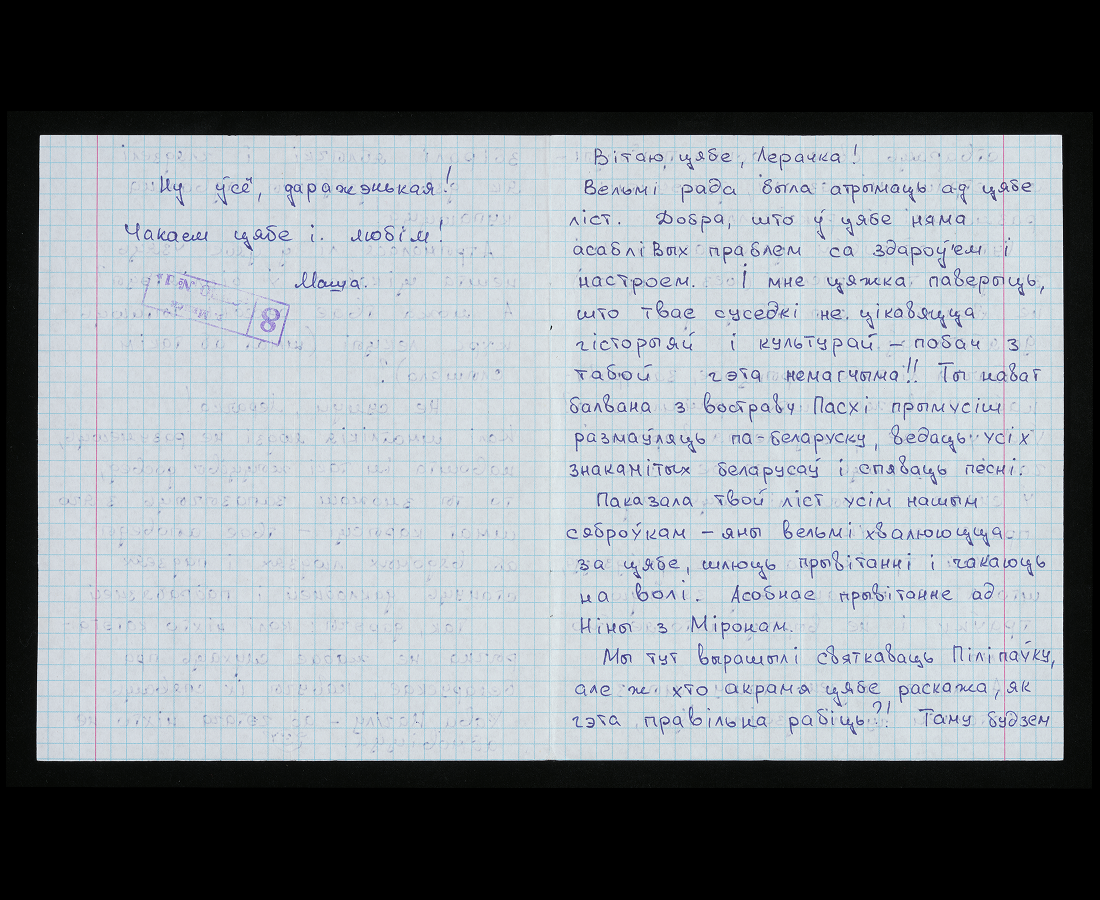 Ну ўсё, даражэнькая!
Чакаем цябе і любім!
Маша.
8
Вітаю цябе, Лерачка!
Вельмі рада была атрымаць ад цябе
ліст. Добра, што ў цябе няма
асаблівых праблем са здароўем і
настроем. І мне цяжка паверыць,
што твае суседкі не цікавяцца
гісторыяй і культурай – побач з
табой гэта немагчыма!! Ты нават
балвана з вострава Пасхі прымусіш
размаўляць па-беларуску, ведаць усіх
знакамітых беларусаў і спяваць песні.
Паказала твой ліст усім нашым
сяброўкам – яны вельмі хвалююцца
за цябе, шлюць прывітанні і чакаюць
на волі. Асобнае прывітанне ад
Ніны з Міронам.
Мы тут вырашылі святкаваць Піліпаўку,
але ж хто акрамя цябе раскажа, як
гэта правільна рабіць?! Таму будзем